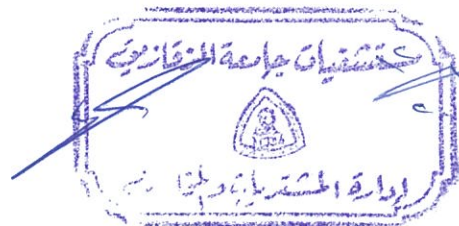 مستشفيات جامعة الزقازيق
1974
إدارة المشتريات والمخازن